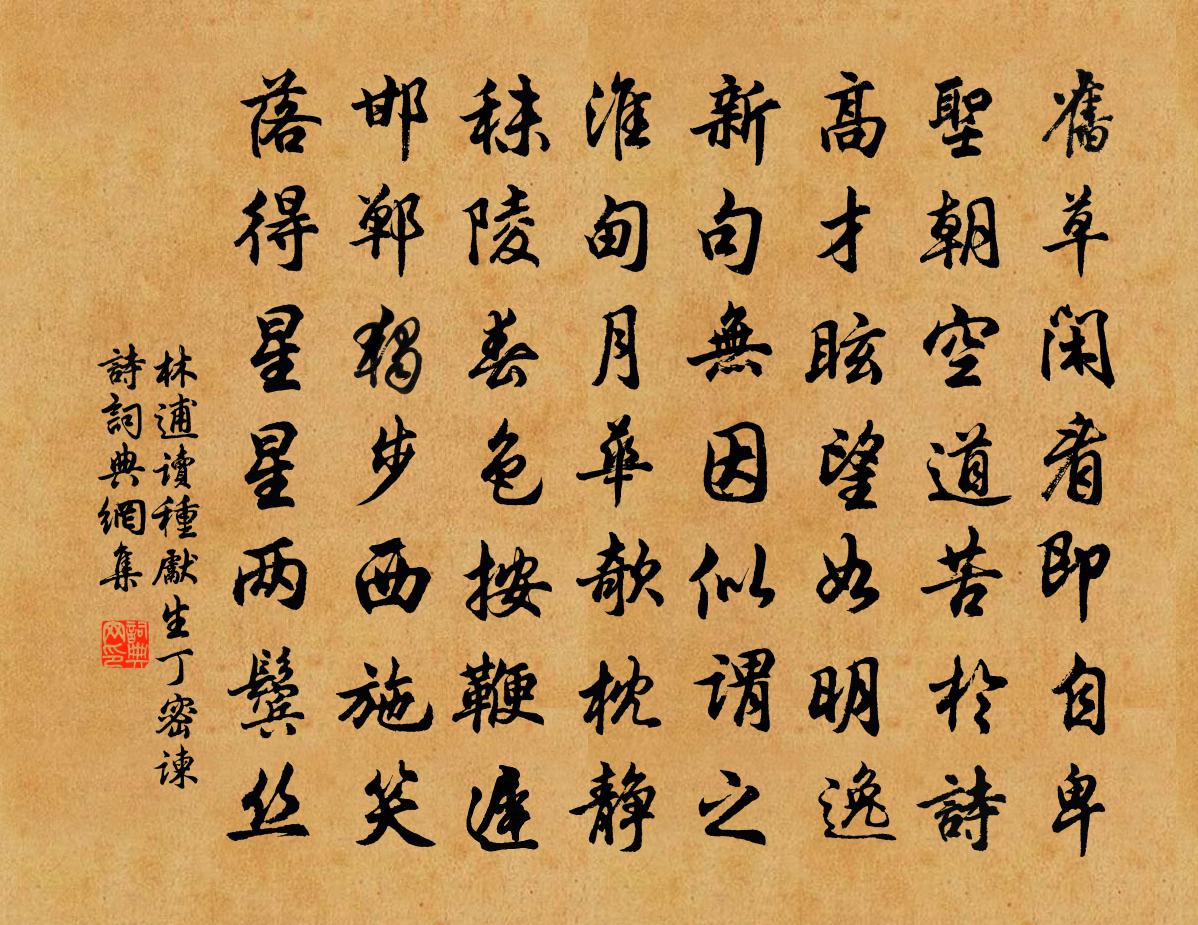 舊草閑看即自卑
聖朝空道苦於詩
高才眩望如明逸
新句無因似謂之
淮甸月華欹枕静
秣陵春色按鞭遲
邯鄲獨步西施笑
落得星星两鬢丝
林逋讀種獻生丁密諫
詩詞典網集
詞典网印